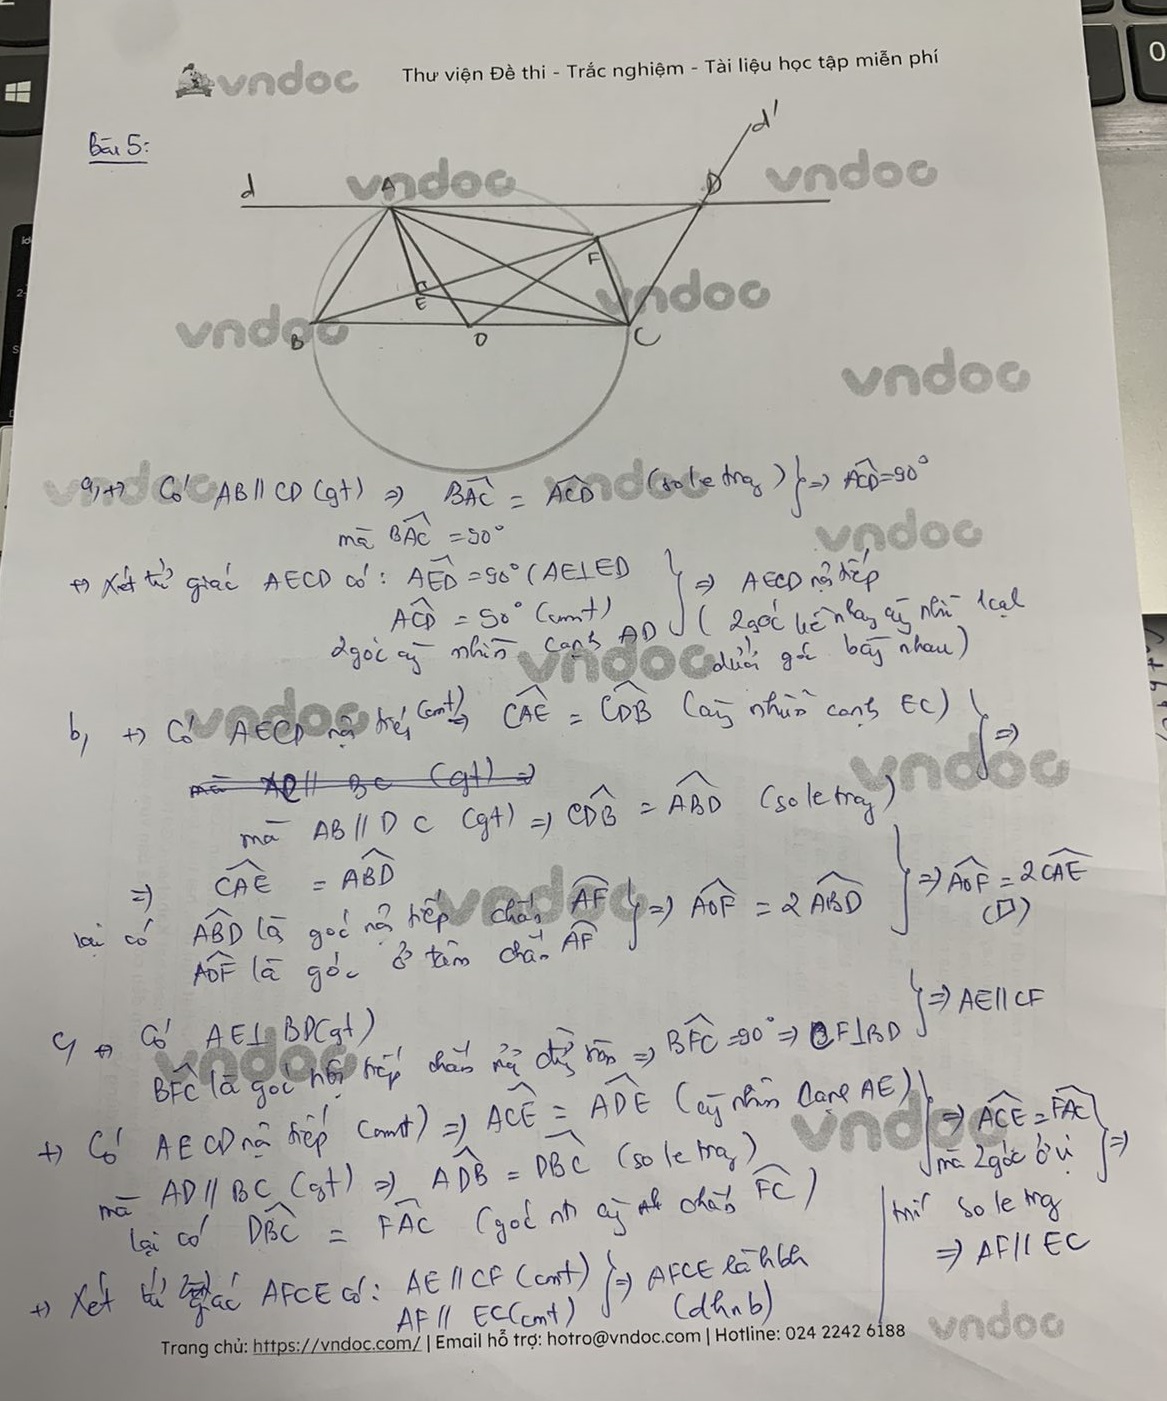 vndoc
Thư viện Đề thi - Trắc nghiệm - Tài liệu học tập miễn phí
Bài 5:
d'
d
A
D
F
E
B
O
C
a, +) Có AB // CD (gt) => BAC = ACD (so le trg) } => ACD = 90°
mà BAC = 90°
+) Xét tứ giác AECD có: AED = 90° (AE⊥ED
ACD = 90° (cmt)
2 góc cg nhìn cạnh AD } => AECD nội tiếp
( 2 góc kề nhau cg nhìn 1 cạnh
dưới góc bằng nhau)
b, +) Có AECD nội tiếp (cmt) => CAE = CDB (cùg nhìn cạnh EC) } =>
mà AB // DC (gt) => CDB = ABD (so le trg)
=> CAE = ABD
lại có ABD là góc nội tiếp chắn AF
AOF là góc ở tâm chắn AF } => AOF = 2 ABD } => AOF = 2 CAE
c, +) Có AE⊥BD (gt)
BFC là góc nội tiếp chắn nửa đường tròn => BFC = 90° => CF⊥BD } => AE // CF
+) Có AECD nội tiếp (cmt) => ACE = ADE (cg nhìn cạnh AE)
mà AD // BC (gt) => ADB = DBC (so le trg)
lại có DBC = FAC (góc nt cg chắn FC) } => ACE = FAC
mà 2 góc ở vị } =>
trí so le trg
=> AF // EC
+) Xét tứ giác AFCE có: AE // CF (cmt)
AF // EC (cmt) } => AFCE là hbh
(dhnb)
Trang chủ: https://vndoc.com/ | Email hỗ trợ: hotro@vndoc.com | Hotline: 024 2242 6188